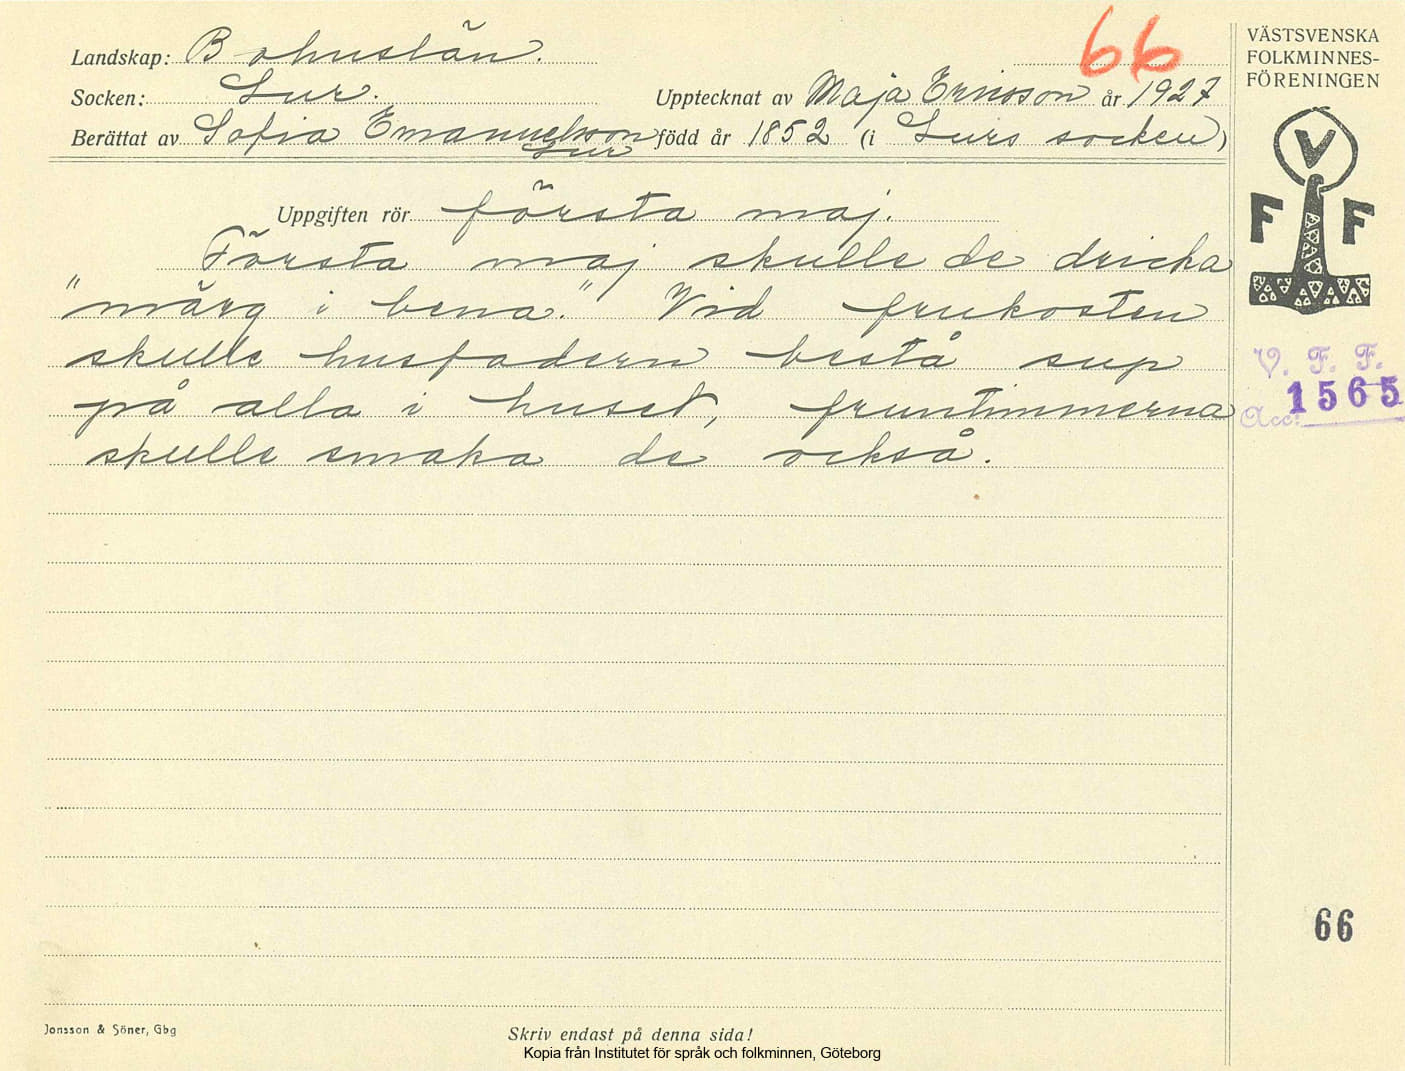 Landskap: Bohuslän.
66
Socken: Lur.
Upptecknat av Maja Ericsson år 1927
Berättat av Sofia Emanuelsson född år 1852 (i Lurs socken)
Lur
Uppgiften rör första maj.
Första maj skulle de dricka
"märg i bena." Vid frukosten
skulle husfadern bestå sup
på alla i huset, fruntimmerna
skulle smaka de också.
VÄSTSVENSKA
FOLKMINNES-
FÖRENINGEN
V
F F
V. F. F.
Acc: 1565
66
Jonsson & Söner, Gbg
Skriv endast på denna sida!
Kopia från Institutet för språk och folkminnen, Göteborg